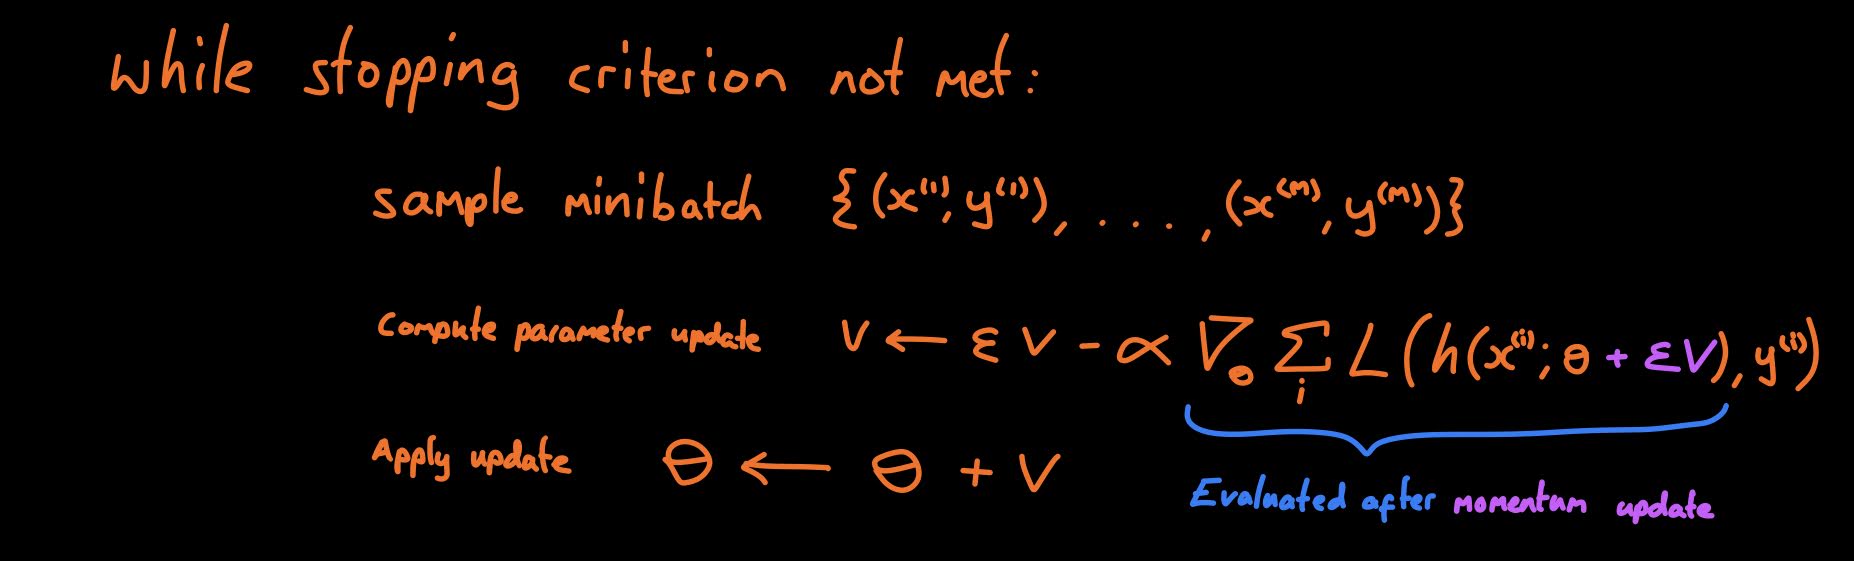 while stopping criterion not met:
sample minibatch {(x⁽¹⁾, y⁽¹⁾), . . . . , (x⁽ᵐ⁾, y⁽ᵐ⁾)}
Compute parameter update V ← ε V - α ∇_θ Σ_i L(h(x⁽ⁱ⁾; θ + εV), y⁽ⁱ⁾)
Apply update θ ← θ + V
Evaluated after momentum update